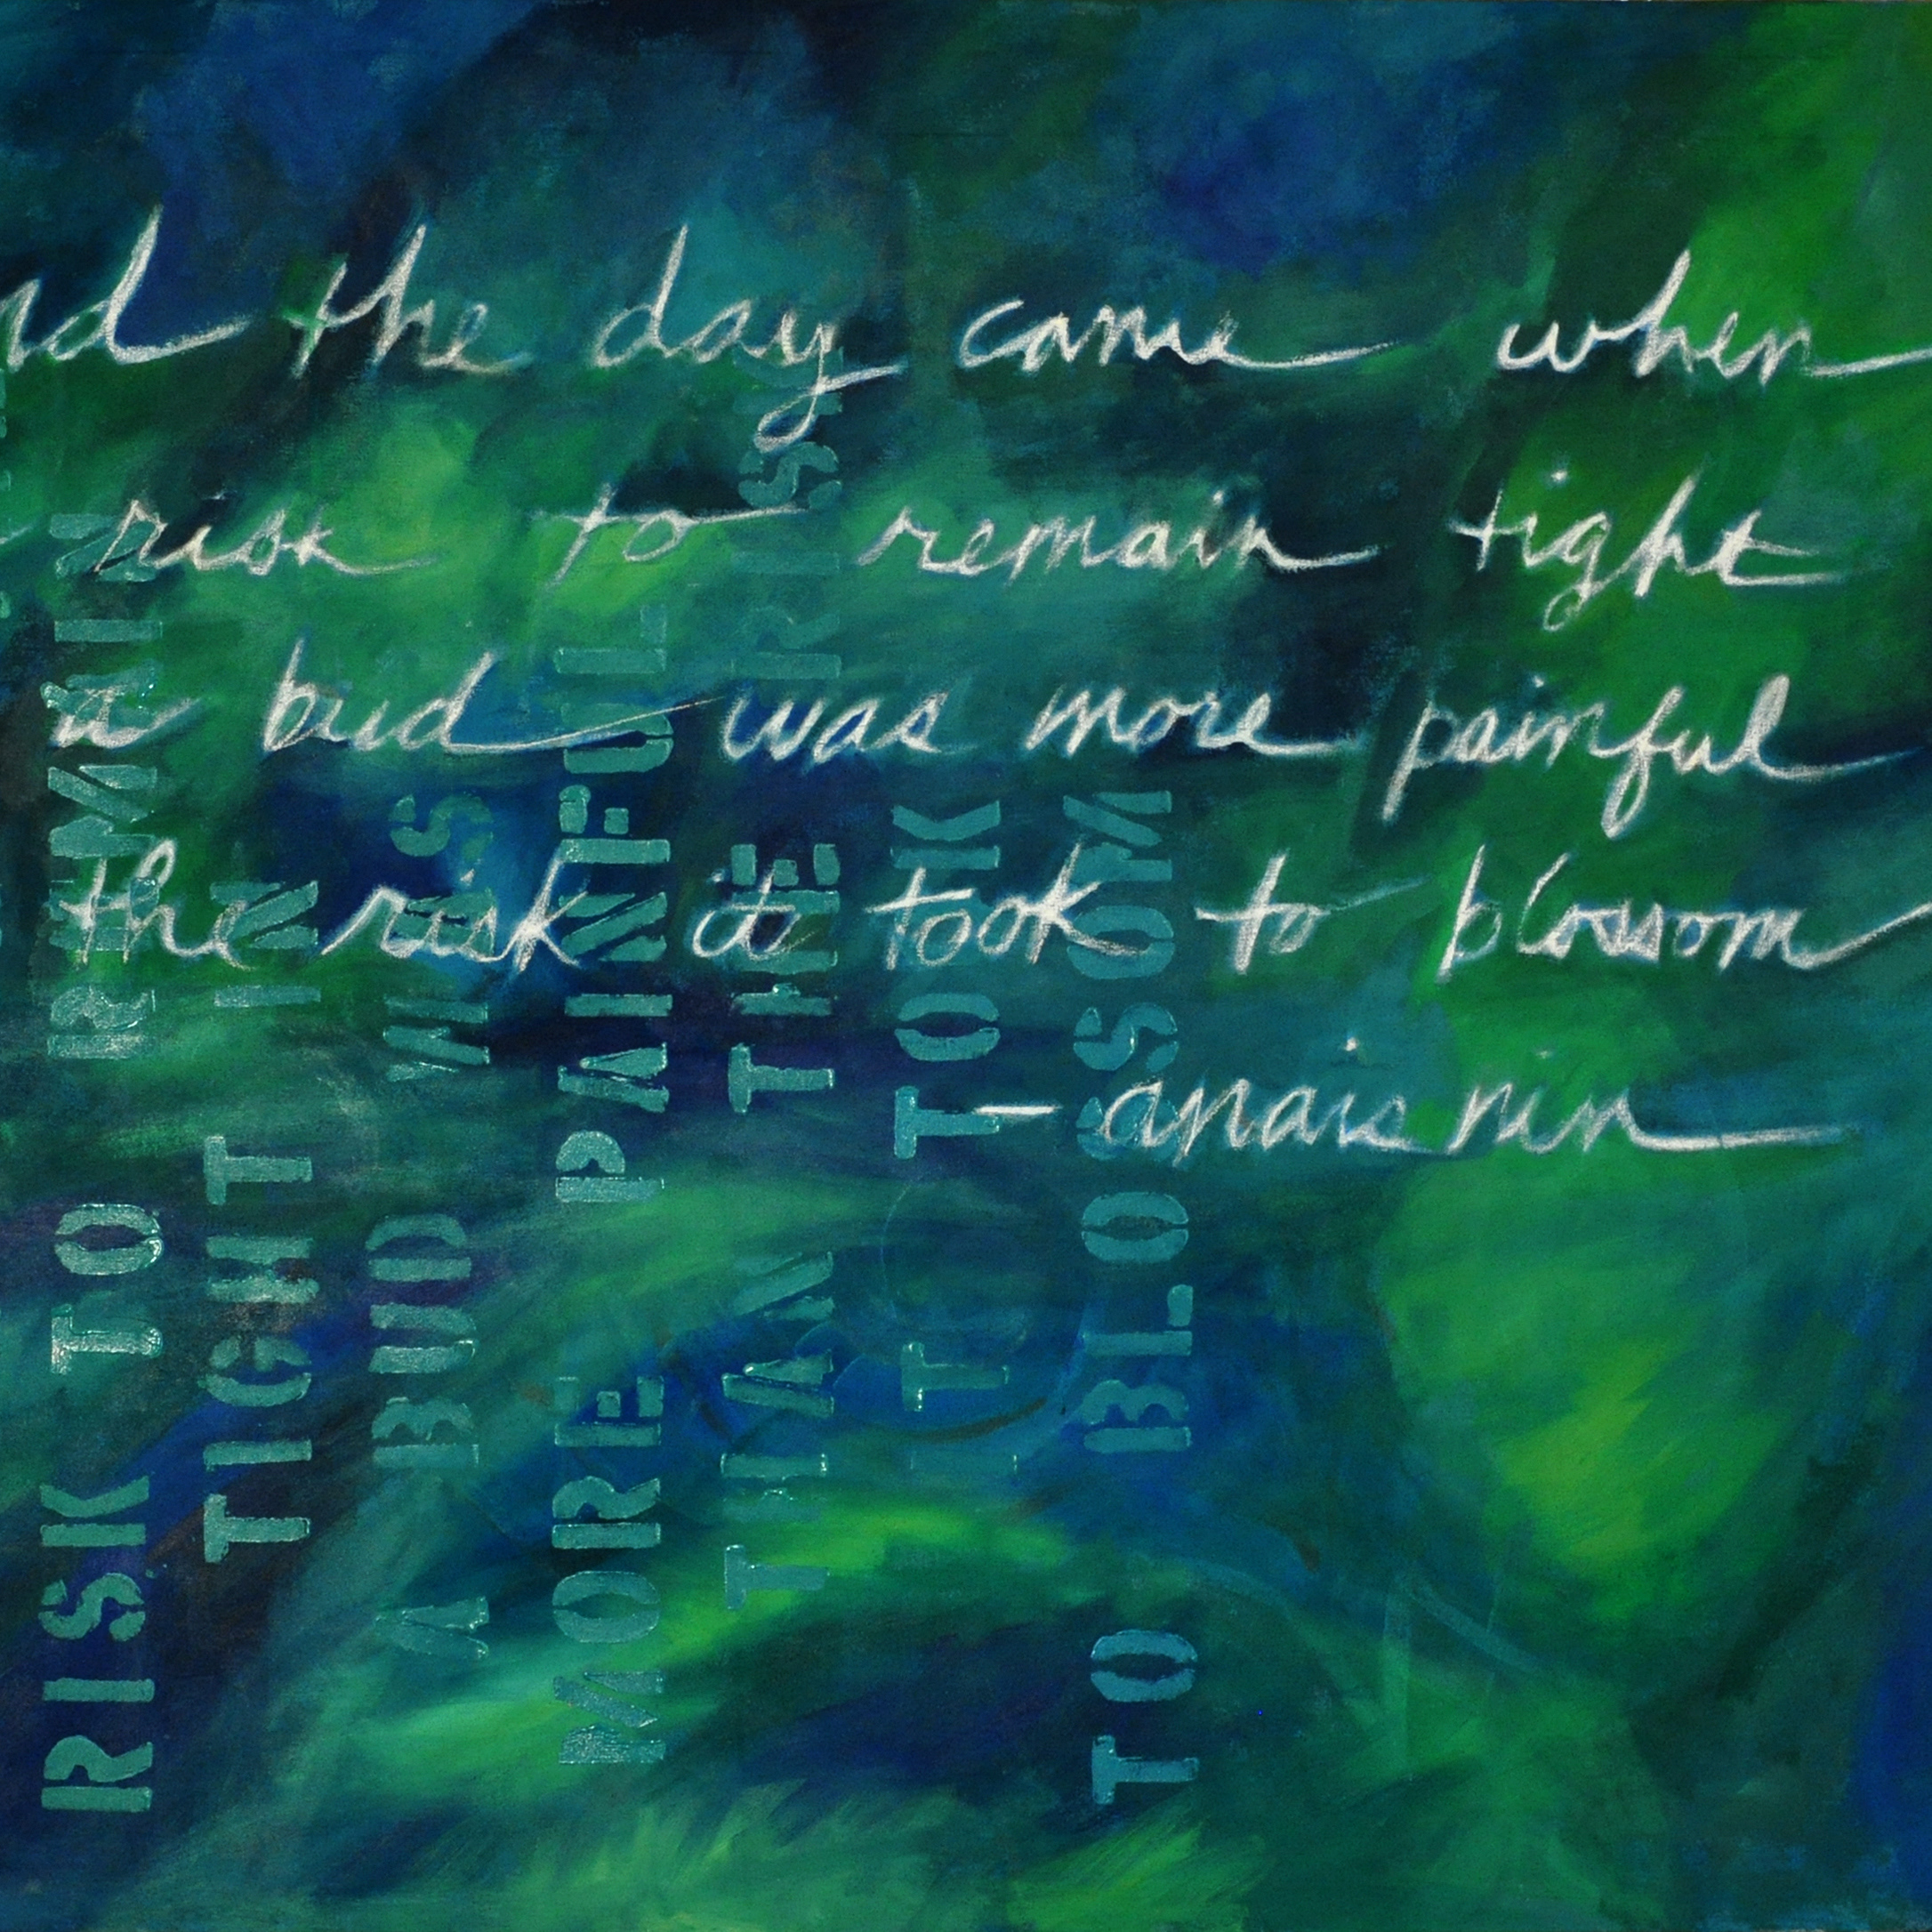 nd the day came when
risk to remain tight
a bud was more painful
the risk it took to blossom
— anais nin
RISK TO REMAIN
TIGHT IN
A BUD WAS
MORE PAINFUL
THAN THE RISK
IT TOOK
TO BLOSSOM